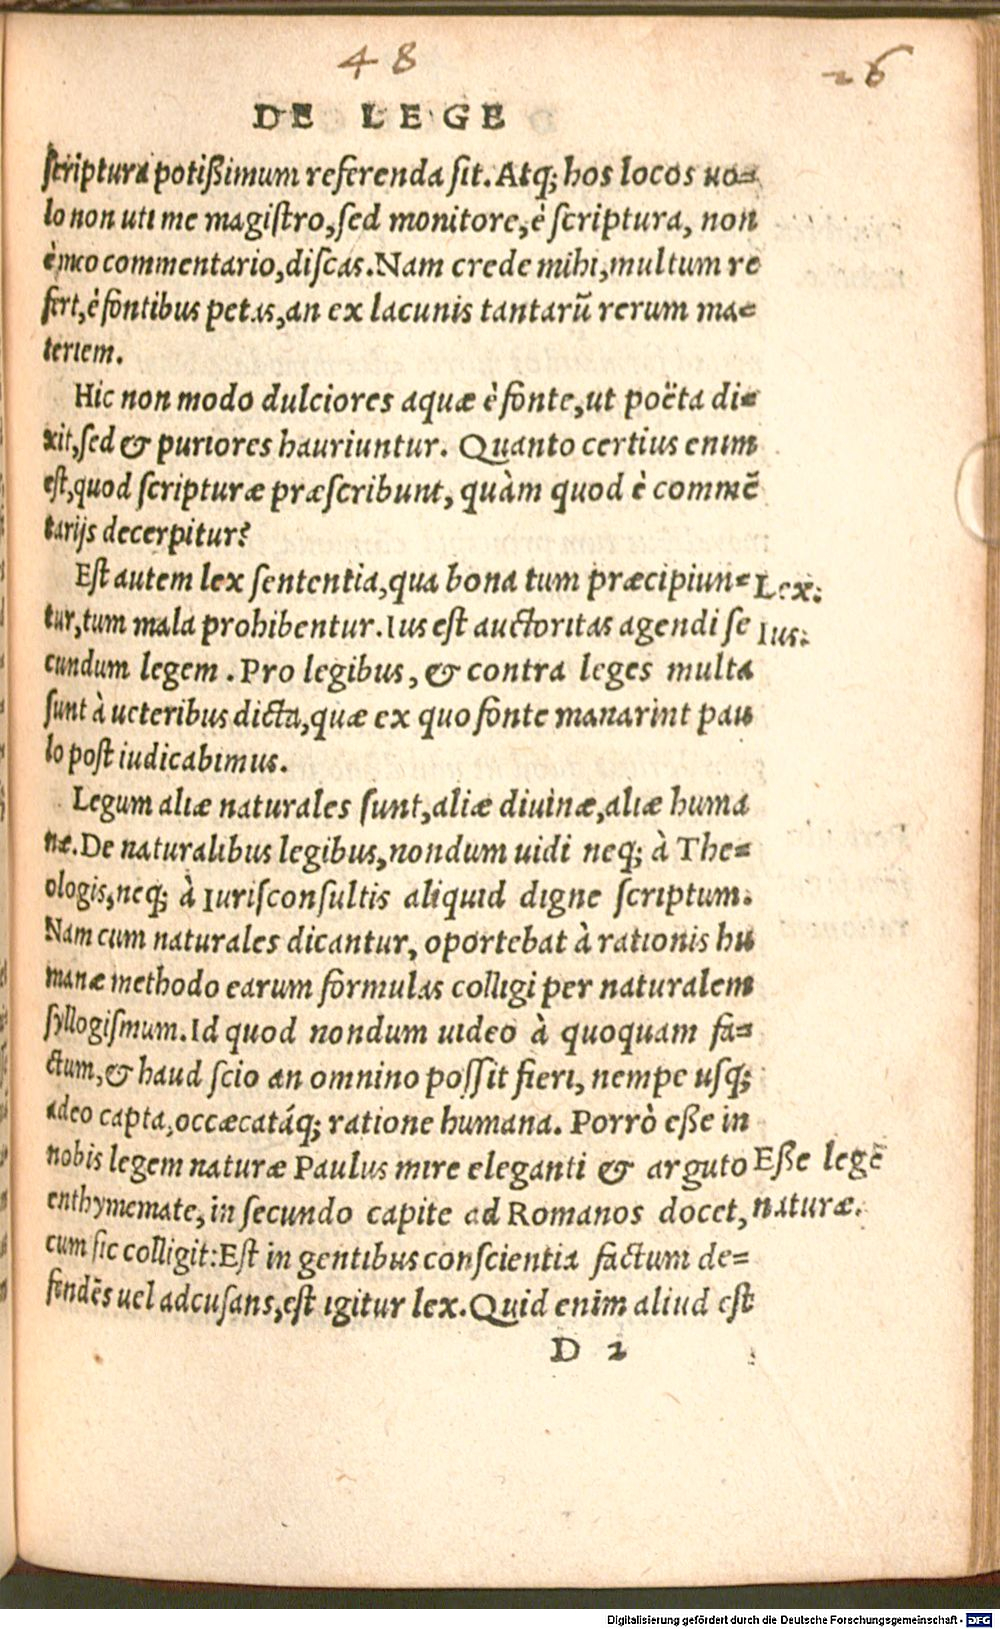 48
26
DE LEGE
ſcriptura potißimum referenda ſit. Atq; hos locos uo-
lo non uti me magiſtro, ſed monitore, è ſcriptura, non
è meo commentario, diſcas. Nam crede mihi, multum re
fert, è fontibus petas, an ex lacunis tantarū rerum ma-
teriem.
Hic non modo dulciores aquæ è fonte, ut poëta di-
xit, ſed & puriores hauriuntur. Quanto certius enim
eſt, quod ſcripturæ præſcribunt, quàm quod è commē
tarijs decerpitur?
Eſt autem lex ſententia, qua bona tum præcipiun-
Lex.
tur, tum mala prohibentur. Ius eſt auctoritas agendi ſe
Ius.
cundum legem. Pro legibus, & contra leges multa
ſunt à ueteribus dicta, quæ ex quo fonte manarint pau
lo poſt iudicabimus.
Legum aliæ naturales ſunt, aliæ diuinæ, aliæ huma
næ. De naturalibus legibus, nondum uidi neq; à The-
ologis, neq; à Iuriſconſultis aliquid digne ſcriptum.
Nam cum naturales dicantur, oportebat à rationis hu
manæ methodo earum formulas colligi per naturalem
ſyllogiſmum. Id quod nondum uideo à quoquam fa-
ctum, & haud ſcio an omnino poſſit fieri, nempe uſq;
adeo capta, occæcatáq; ratione humana. Porrò eße in
nobis legem naturæ Paulus mire eleganti & arguto
Eße legē
enthymemate, in ſecundo capite ad Romanos docet,
naturæ.
cum ſic colligit: Eſt in gentibus conſcientia factum de-
fendēs uel adcuſans, eſt igitur lex. Quid enim aliud eſt
D 2
Digitalisierung gefördert durch die Deutsche Forschungsgemeinschaft - DFG